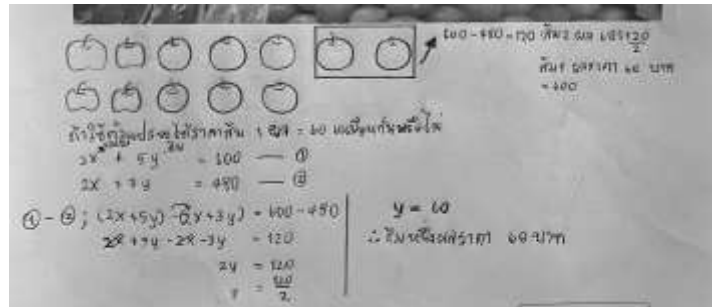 600-480=120 ส้ม 2 ผล 120/2
ส้ม 1 ผลราคา 60 บาท
= 600
ส้ม 1 ผล = 60 เหมือนกันหรือไม่
2x + 5y = 600 — ①
2x + 3y = 480 — ②
① - ②; (2x+5y) - (2x+3y) = 600-480
2x+5y-2x-3y = 120
2y = 120
y = 120/2
y = 60
∴ ส้มหนึ่งผลราคา 60 บาท